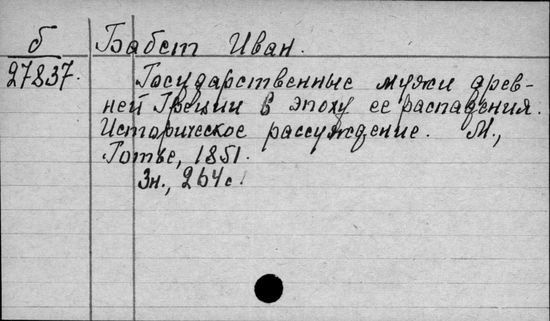 б Бабст Иван.
27837. Государственные мужи древ-
ней Греции в эпоху ее распадения.
Историческое рассуждение. М.,
Готье, 1851.
3н., 264 с.